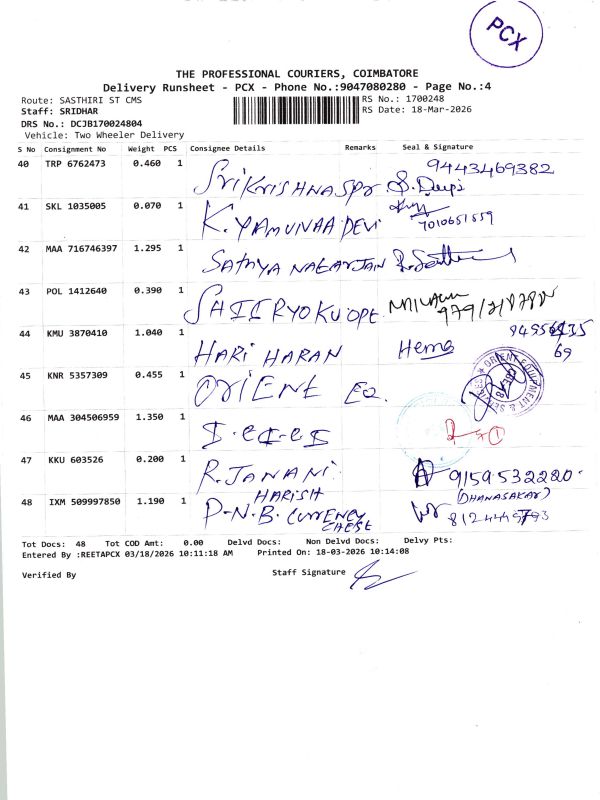 PCX
THE PROFESSIONAL COURIERS, COIMBATORE
Delivery Runsheet - PCX - Phone No.:9047080280 - Page No.:4
Route: SASTHIRI ST CMS
RS No.: 1700248
Staff: SRIDHAR
RS Date: 18-Mar-2026
DRS No.: DCJB170024804
Vehicle: Two Wheeler Delivery
S No Consignment No Weight PCS Consignee Details Remarks Seal & Signature
40 TRP 6762473 0.460 1 9443469382
41 SKL 1035005 0.070 1 K. YAMUNAA DEVI 7010651559
42 MAA 716746397 1.295 1 SATHYA NAGARJAN
43 POL 1412640 0.390 1
44 KMU 3870410 1.040 1 HARI HARAN Hema
69
45 KNR 5357309 0.455 1 ORIENT EQ. ORIENT EQUIPMENT & SERVICES
46 MAA 304506959 1.350 1
47 KKU 603526 0.200 1 R. JANANI 9159532220
HARISH (DHANASAKAR)
48 IXM 509997850 1.190 1 P.N.B. CURRENCY
CHEST
Tot Docs: 48 Tot COD Amt: 0.00 Delvd Docs: Non Delvd Docs: Delvy Pts:
Entered By :REETAPCX 03/18/2026 10:11:18 AM Printed On: 18-03-2026 10:14:08
Verified By Staff Signature